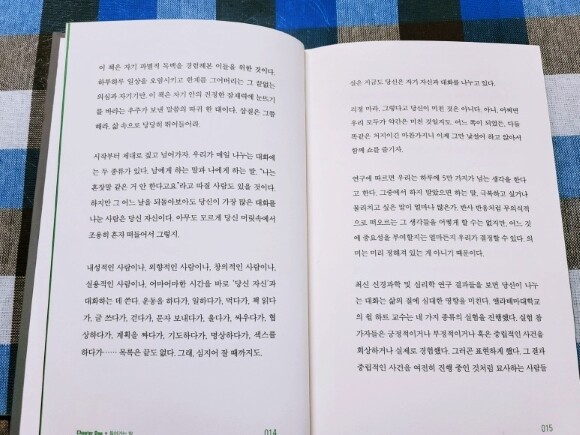 이 책은 자기 파멸적 독백을 경험해본 이들을 위한 것이다.
하루하루 일상을 오염시키고 한계를 그어버리는 그 끝없는
의심과 자기기만. 이 책은 자기 안의 진정한 잠재력에 눈뜨기
를 바라는 우주가 보낸 말씀의 따귀 한 대이다. 삽질은 그쯤
해라. 삶 속으로 당당히 뛰어들어라.
시작부터 제대로 짚고 넘어가자. 우리가 매일 나누는 대화에
는 두 종류가 있다. 남에게 하는 말과 나에게 하는 말. “나는
혼잣말 같은 거 안 한다고요”라고 따질 사람도 있을 것이다.
하지만 그 어느 날을 되돌아보아도 당신이 가장 많은 대화를
나누는 사람은 당신 자신이다. 아무도 모르게 당신 머릿속에서
조용히 혼자 떠들어서 그렇지.
내성적인 사람이나, 외향적인 사람이나, 창의적인 사람이나,
실용적인 사람이나, 어마어마한 시간을 바로 ‘당신 자신’과
대화하는 데 쓴다. 운동을 하다가, 일하다가, 먹다가, 책 읽다
가, 글 쓰다가, 걷다가, 문자 보내다가, 울다가, 싸우다가, 협
상하다가, 계획을 짜다가, 기도하다가, 명상하다가, 섹스를
하다가…… 목록은 끝도 없다. 그래, 심지어 잘 때까지도.
Chapter One
014
실은 지금도 당신은 자기 자신과 대화를 나누고 있다.
걱정 마라. 그렇다고 당신이 미친 것은 아니다. 아니, 어쩌면
우리 모두가 약간은 미친 것일지도. 어느 쪽이 되었든, 다들
똑같은 처지이긴 마찬가지니 이제 그만 납셨어 하고 앉아서
함께 쇼를 즐기자.
연구에 따르면 우리는 하루에 5만 가지가 넘는 생각을 한다
고 한다. 그중에서 하지 말았으면 하는 말, 극복하고 싶거나
물리치고 싶은 말이 얼마나 많은가. 반사 반응처럼 무의식적
으로 떠오르는 그 생각들을 어떻게 할 수는 없지만, 어느 것
에 중요성을 부여할지는 얼마든지 우리가 결정할 수 있다. 의
미는 미리 정해져 있는 게 아니기 때문이다.
최신 신경과학 및 심리학 연구 결과들을 보면 당신이 나누
는 대화는 삶의 질에 심대한 영향을 미친다. 앨라배마대학교
의 윌 하트 교수는 네 가지 종류의 실험을 진행했다. 실험 참
가자들은 긍정적이거나 부정적이거나 혹은 중립적인 사건을
회상하거나 실제로 경험했다. 그러곤 표현하게 했다. 그 결과
중립적인 사건을 여전히 진행 중인 것처럼 묘사하는 사람들
015